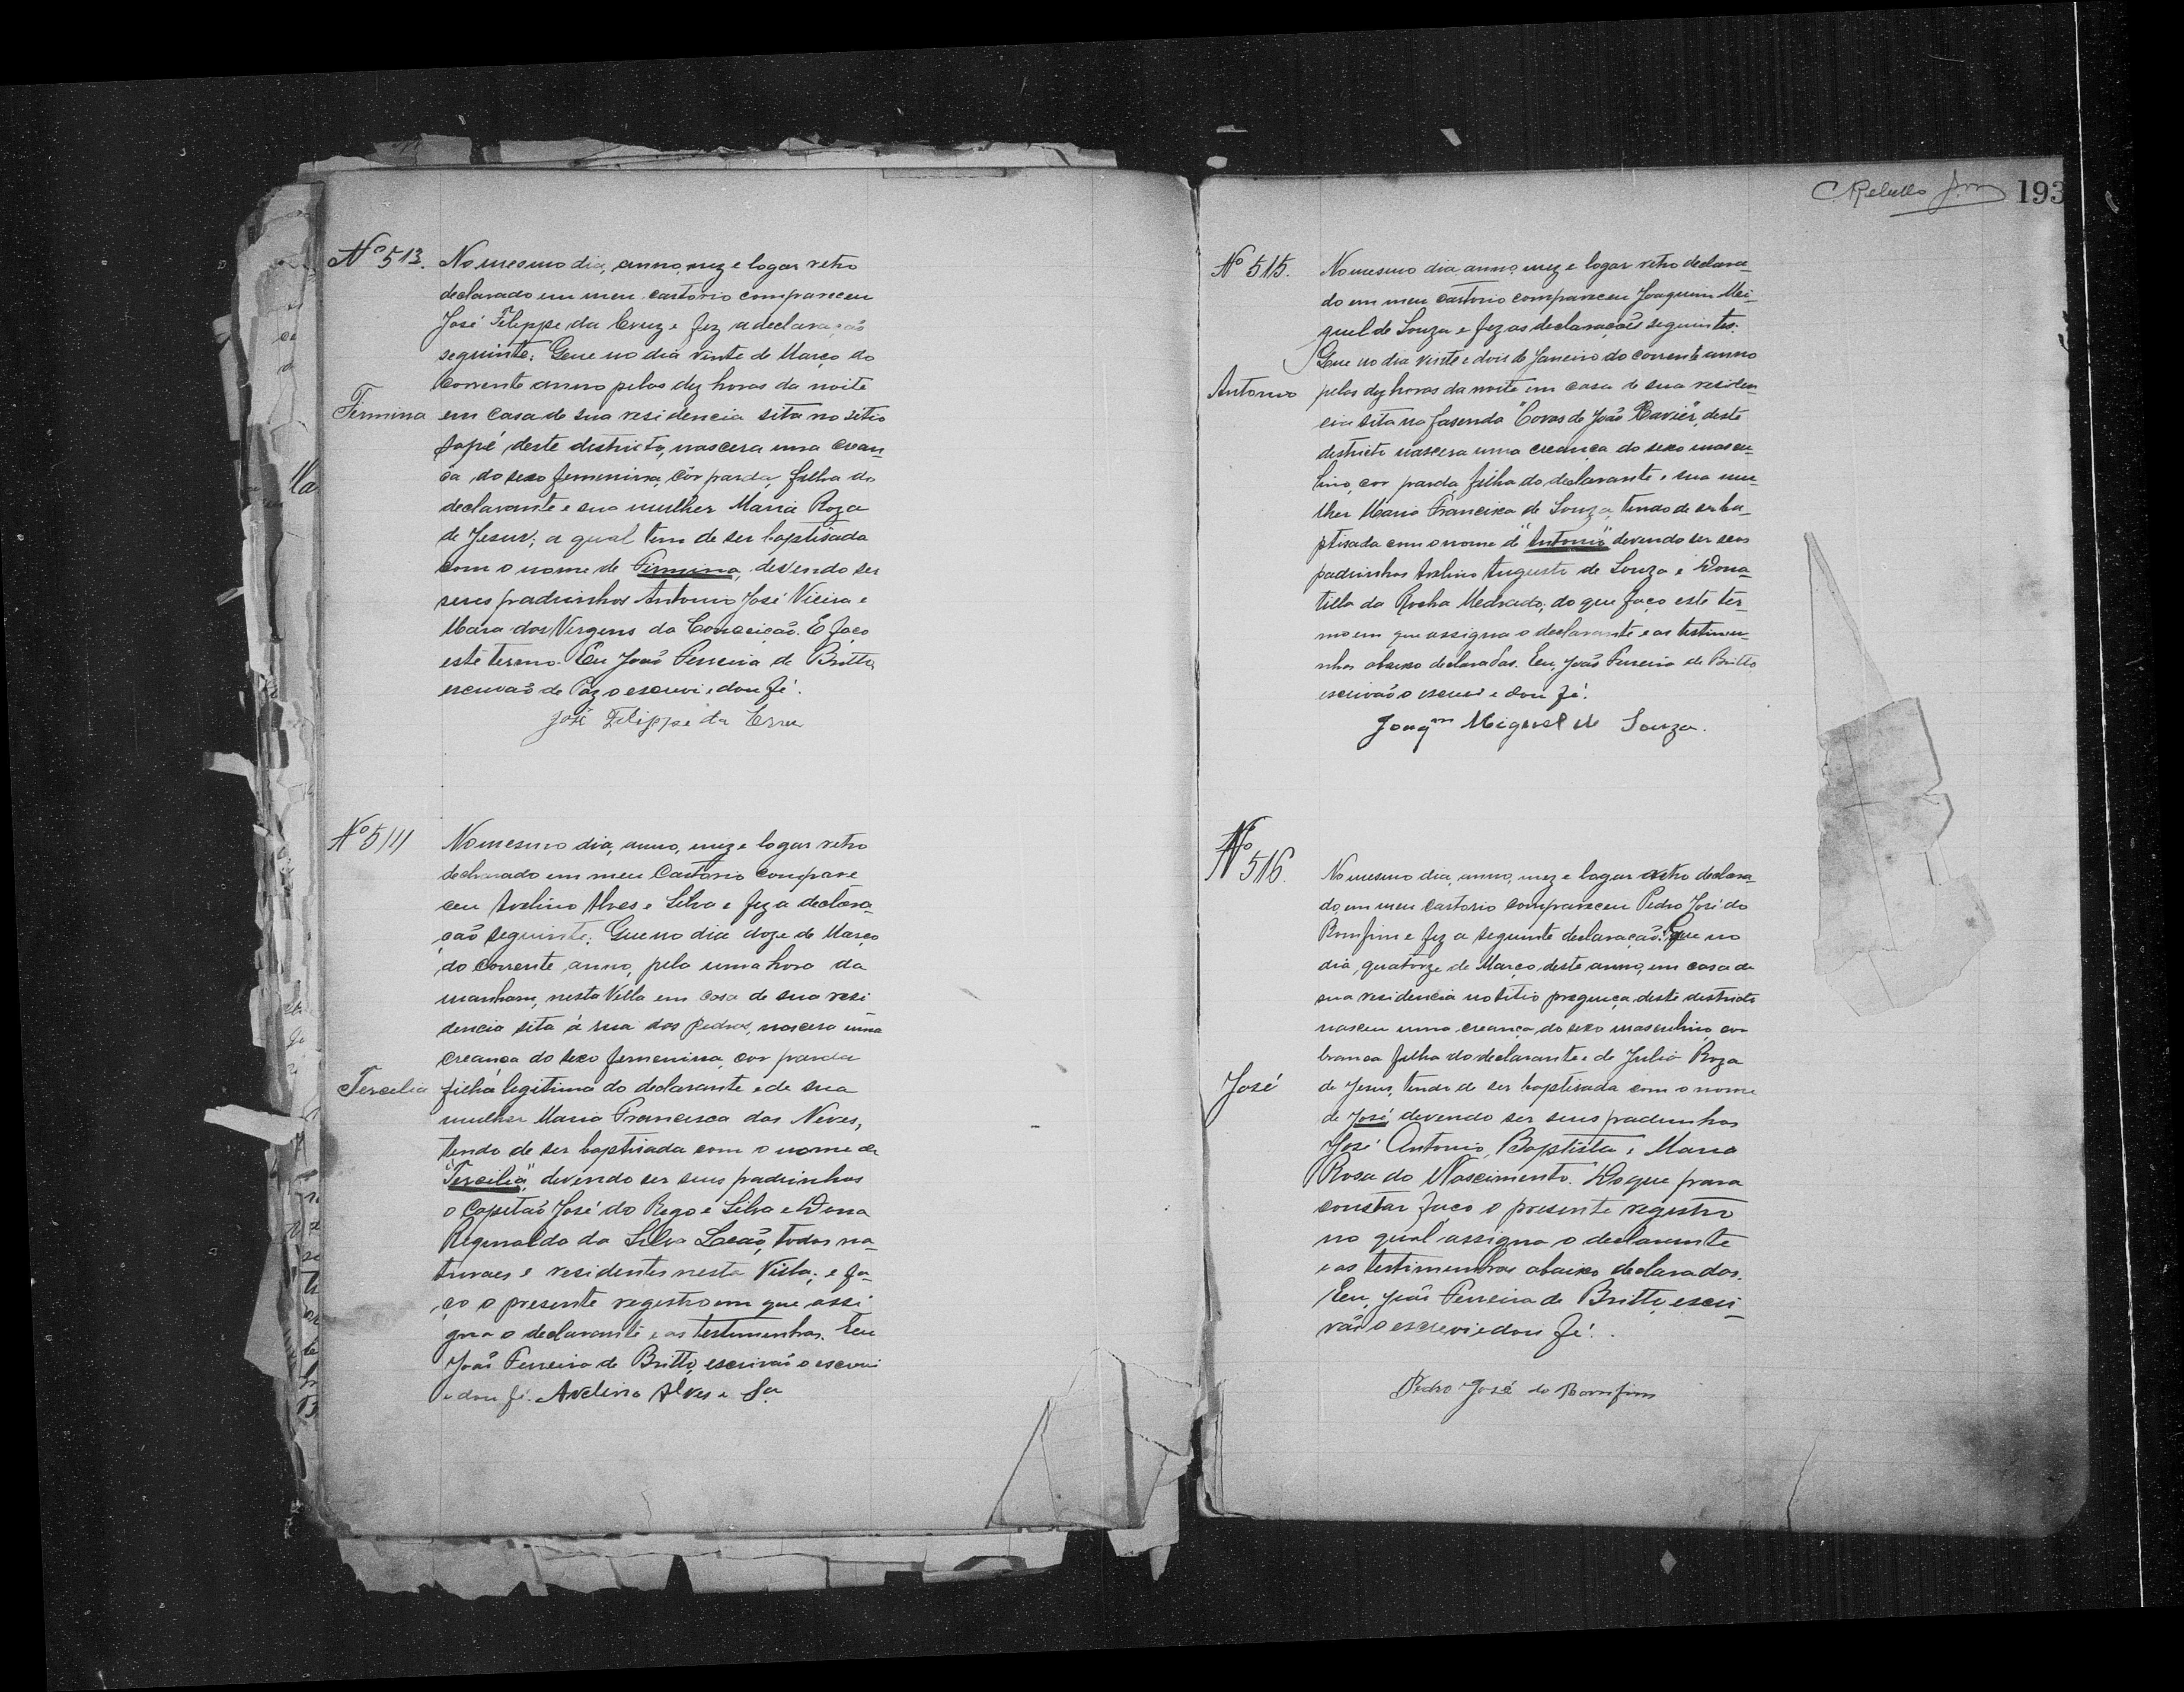 Nº 513. No mesmo dia, anno, mez e logar retro
declarado em meu cartorio compareceu
José Filippe da Cruz e fez a declaração
seguinte: Que no dia vinte de Março do
corrente anno pelas dez horas da noite
Firmina em casa de sua residencia sita no sitio
Sapé, deste districto, nascera uma crean
ça do sexo feminina, côr parda, filha do
declarante e sua mulher Maria Roza
de Jesus; a qual tem de ser baptisada
com o nome de Firmina, devendo ser
seus padrinhos Antonio José Vieira e
Maria das Virgens da Conceição. E faço
este termo. Eu João Ferreira de Britto,
escrivão de Paz o escrevi e dou fé.
José Filippe da Cru
Nº 514 No mesmo dia, anno, mez e logar retro
declarado em meu Cartorio compare
ceu Avelino Alves e Silva e fez a declara
ção seguinte: Que no dia doze de Março
do corrente anno, pela uma hora da
manham, nesta Villa em casa de sua resi
dencia sita á rua das Pedras, nascera uma
creança do sexo femenina, cor parda
Tercilia filha legitima do declarante e de sua
mulher Maria Francisca das Neves,
tendo de ser baptisada com o nome de
"Tercilia", devendo ser seus padrinhos
o Capitão José do Rego e Silva e Dona
Reginalda da Silva Leão, todos na-
turaes e residentes nesta Villa; e fa-
ço o presente registro em que assi
gna o declarante e as testimunhas. Eu
João Ferreira de Britto, escrivão o escrevi
e dou fé. Avelino Alves e Sa
C. Rebello 193
Nº 515. No mesmo dia, anno, mez e logar retro declara-
do em meu cartorio compareceu Joaquim Mi-
guel de Souza e fez as declarações seguintes:
Que no dia vinte e dois de Janeiro do corrente anno
Antonio pelas dez horas da noite em casa de sua residen
cia sita na fasenda "Covas de João Xavier", deste
districto nascera uma creança do sexo mascu-
lino, cor parda filha do declarante e sua mu-
lher Maria Francisca de Souza, tendo de ser ba-
ptisada com o nome de "Antonio" devendo ser seus
padrinhos Avelino Augusto de Souza e Dona-
tilla da Rocha Medrado; do que faço este ter-
mo em que assigna o declarante e as testimu-
nhas abaixo declaradas. Eu, João Ferreira de Britto
escrivão o escrevi e dou fé.
Joaqm Miguel de Souza.
Nº 516. No mesmo dia, anno, mez e logar retro declara-
do, em meu cartorio compareceu Pedro José do
Bomfim e fez a seguinte declaração: Que no
dia, quatorze de Março deste anno, em casa de
sua residencia no sitio preguiça, deste districto
nasceu uma creança, do sexo masculino, cor
branca filha do declarante e de Julia Roza
José de Jesus, tendo de ser baptisada com o nome
de José, devendo ser seus padrinhos
José Antonio Baptista e Maria
Rosa do Nascimento. Do que para
constar faço o presente registro
no qual assigna o declarante
e as testimunhas abaixo declaradas.
Eu, João Ferreira de Britto, escri-
vão o escrevi e dou fé.
Pedro José do Bomfim